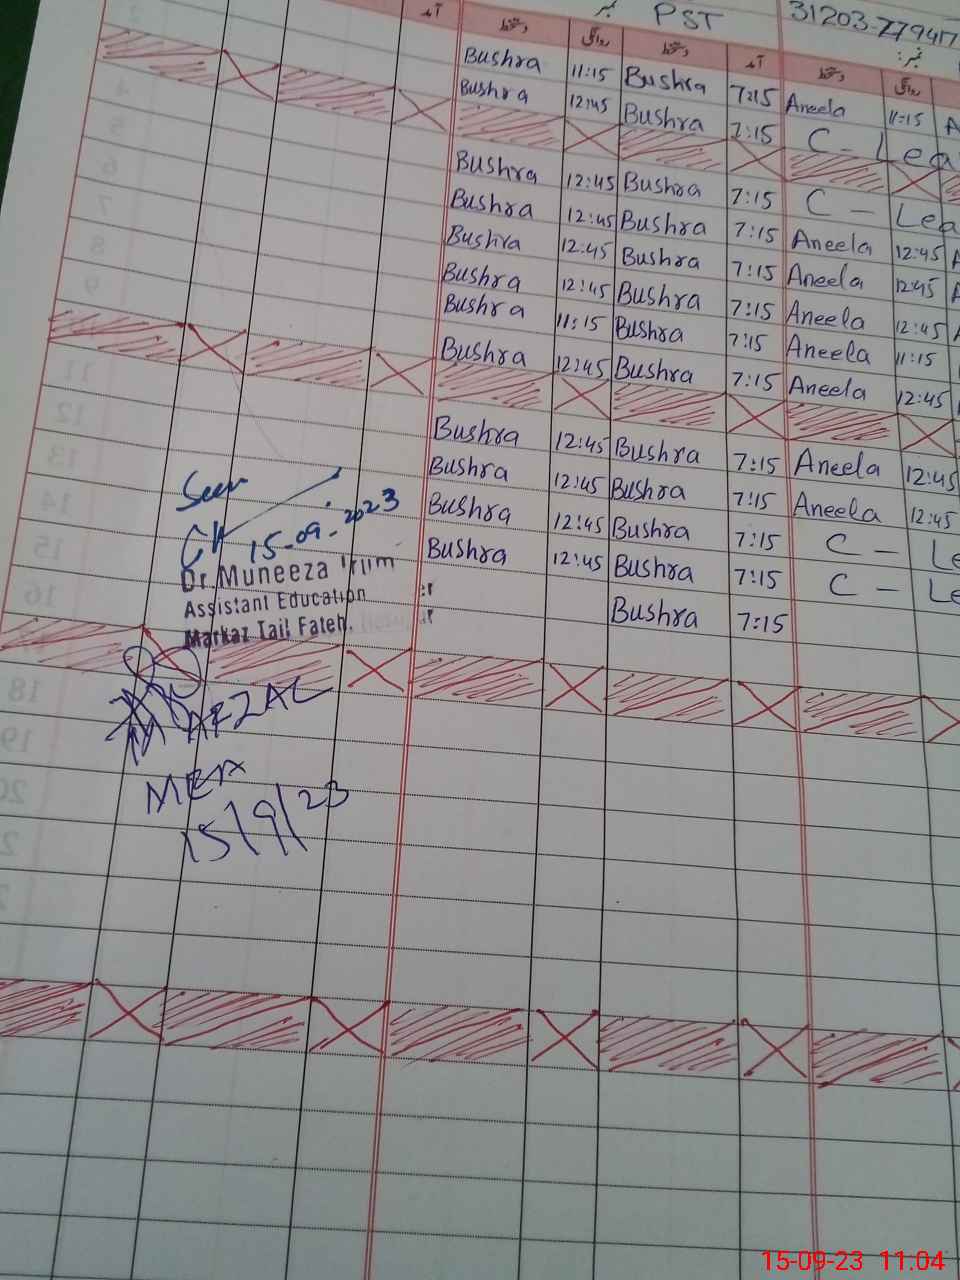 PST 31203-77947
آمد دستخط روانگی دستخط آمد دستخط روانگی
Bushra 11:15 Bushra 7:15 Aneela 11:15 A
Bushra 12:45 Bushra 7:15 C - Lea
Bushra 12:45 Bushra 7:15 C - Lea
Bushra 12:45 Bushra 7:15 Aneela 12:45 A
Bushra 12:45 Bushra 7:15 Aneela 12:45 A
Bushra 12:45 Bushra 7:15 Aneela 12:45 A
Bushra 11:15 Bushra 7:15 Aneela 11:15
Bushra 12:45 Bushra 7:15 Aneela 12:45
Bushra 12:45 Bushra 7:15 Aneela 12:45
Bushra 12:45 Bushra 7:15 Aneela 12:45
Bushra 12:45 Bushra 7:15 C - Le
Bushra 12:45 Bushra 7:15 C - Le
Bushra 7:15
Seen
15-09-2023
Dr. Muneeza Irum
Assistant Education
Markaz Tail Fateh.
M AFZAL
MEA
15/9/23
15-09-23 11.04